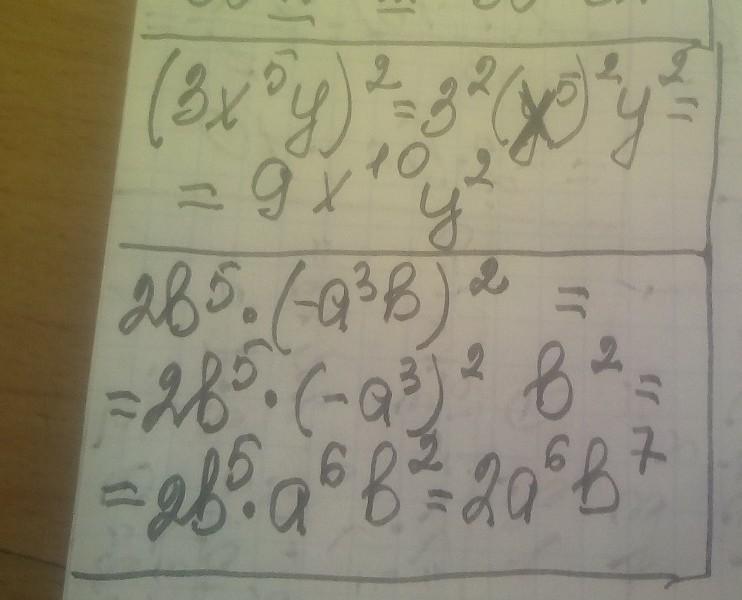 (3x⁵y)² = 3²(x⁵)²y² =
= 9x¹⁰y²
2b⁵·(-a³b)² =
= 2b⁵·(-a³)² b² =
= 2b⁵·a⁶b² = 2a⁶b⁷